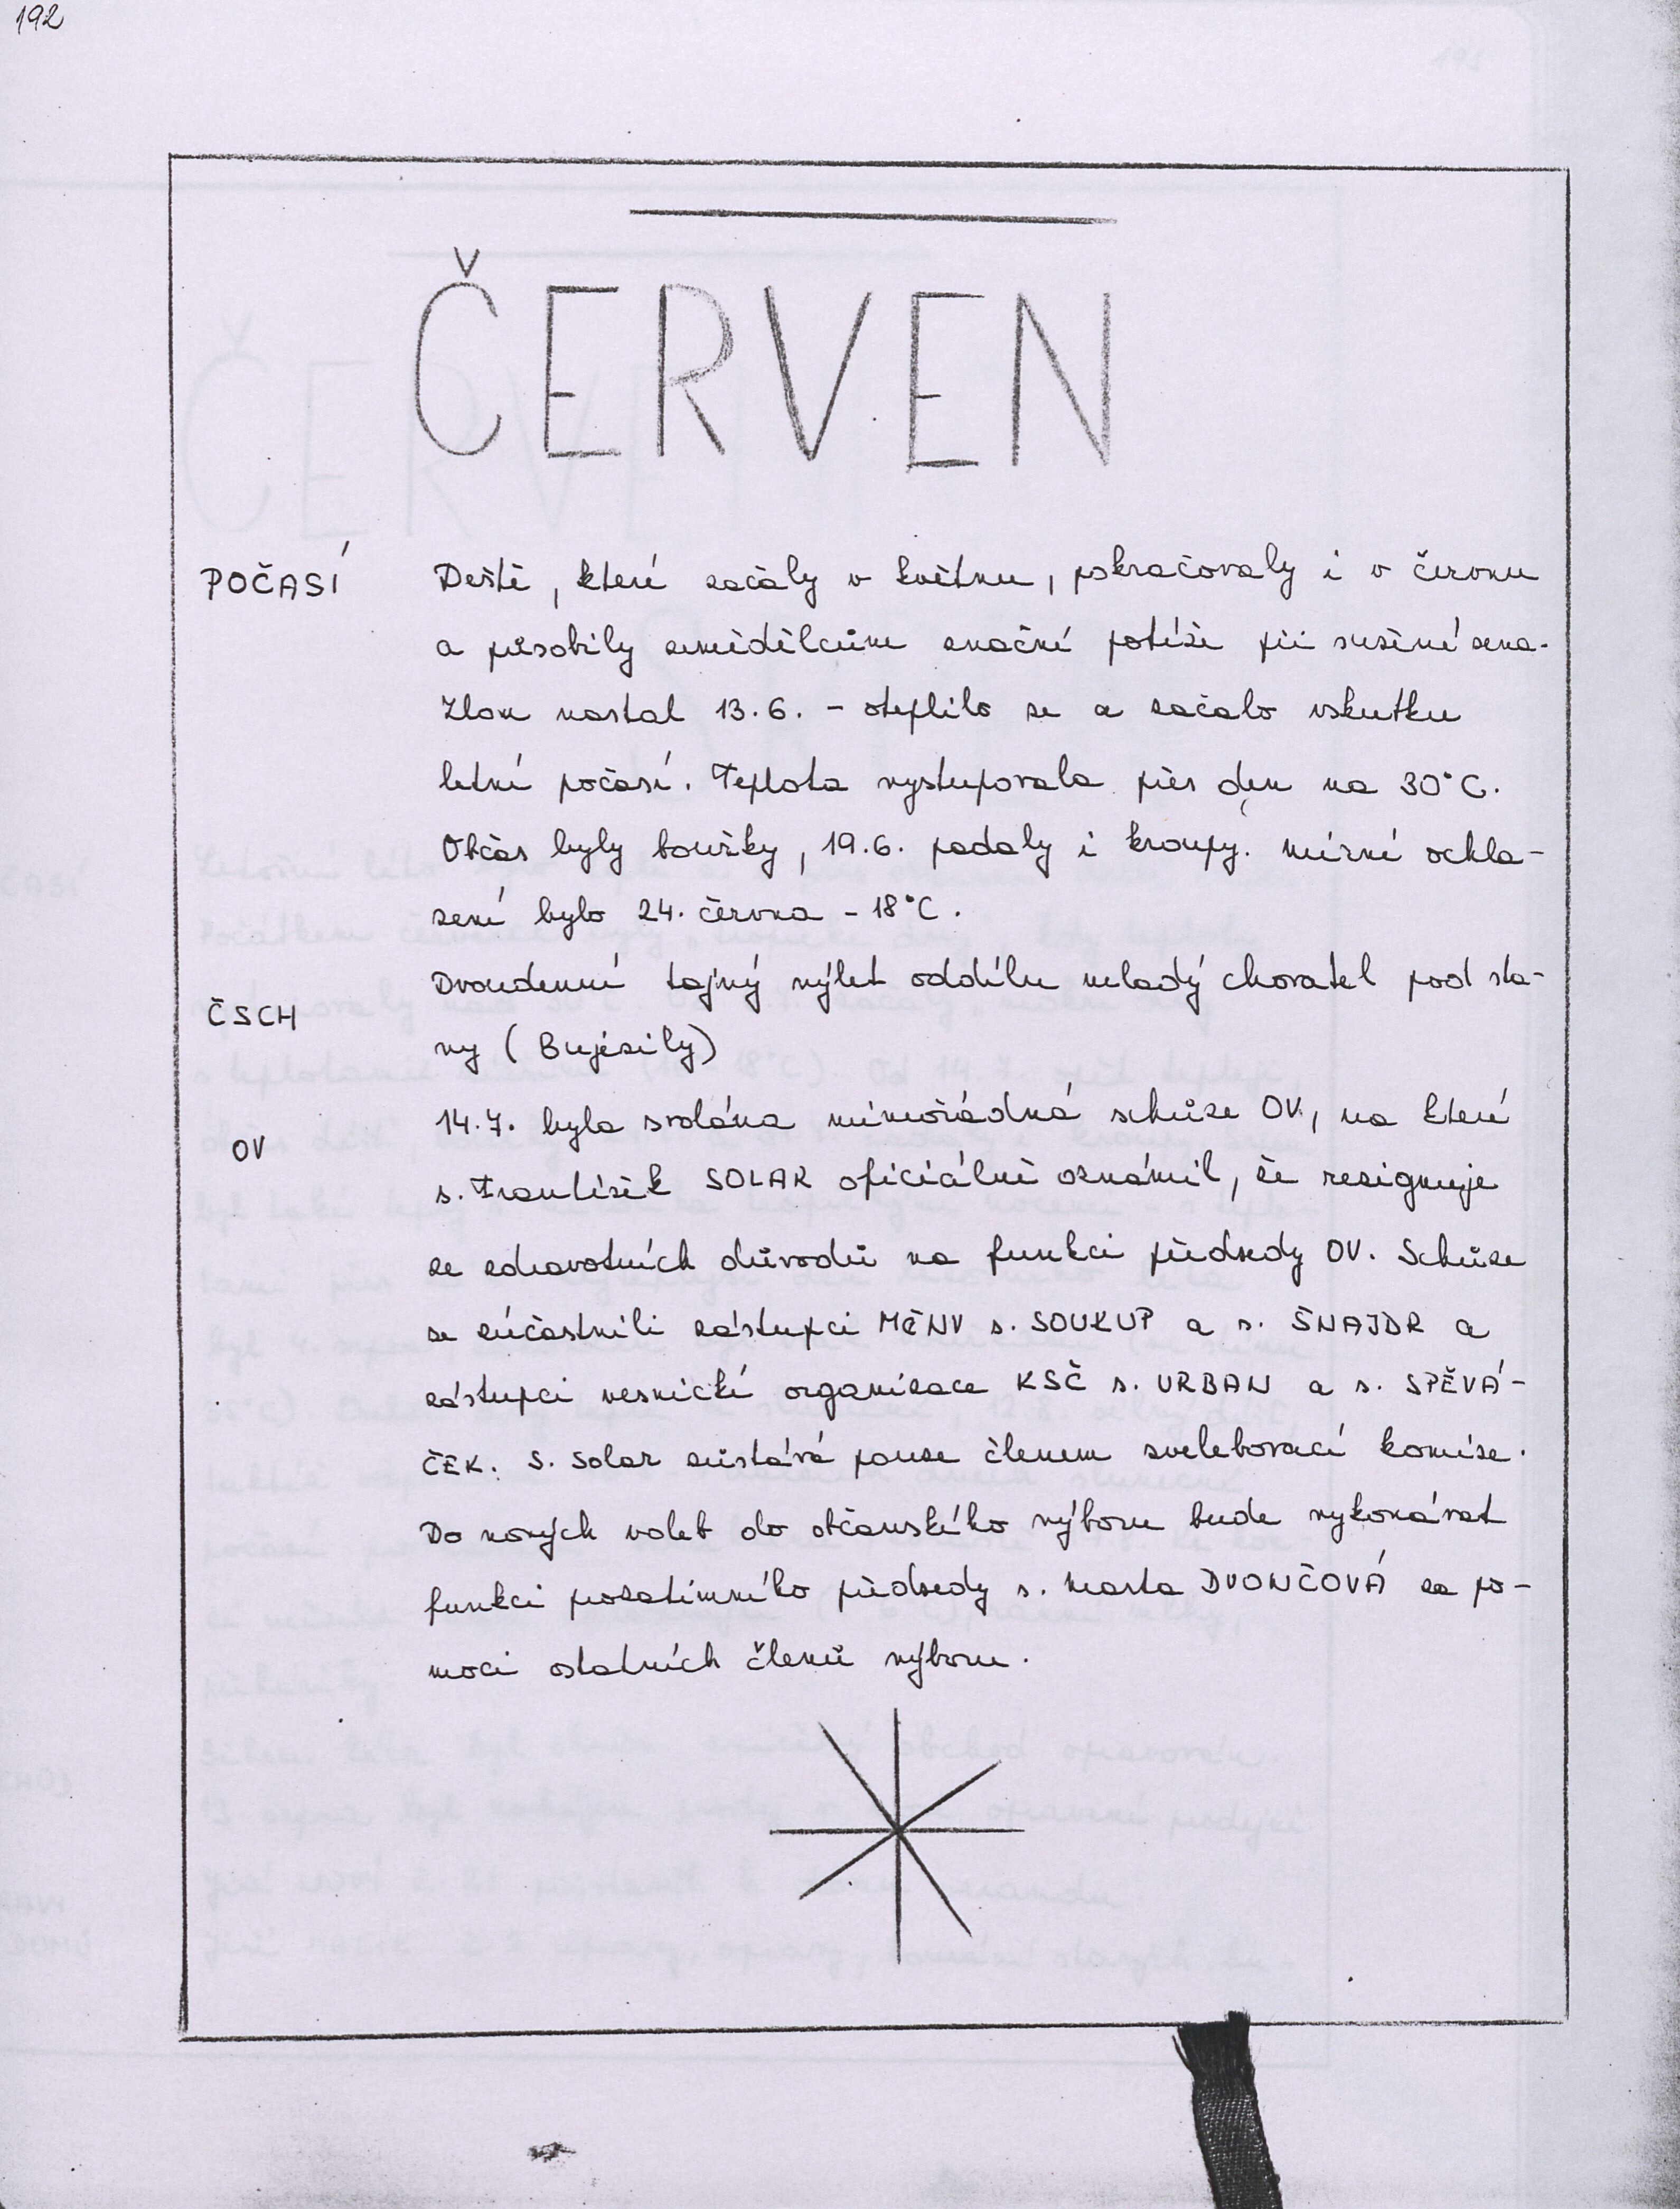 192
ČERVEN
POČASÍ Deště, které začaly v květnu, pokračovaly i v červnu
a působily zemědělcům značné potíže při sušení sena.
Zlom nastal 13.6. - oteplilo se a začalo vskutku
letní počasí. Teplota vystupovala přes den na 30°C.
Občas byly bouřky, 19.6. padaly i kroupy. Mírné ochla-
zení bylo 24. června - 18°C.
ČSCH Dvoudenní tajný výlet oddílu mladý chovatel pod sta-
ny (Bujesily)
OV 14.7. byla svolána mimořádná schůze OV, na které
s. František SOLAR oficiálně oznámil, že resignuje
ze zdravotních důvodů na funkci předsedy OV. Schůze
se zúčastnili zástupci MěNV s. SOUKUP a s. ŠNAJDR a
zástupci vesnické organizace KSČ s. URBAN a s. SPĚVÁ-
ČEK. S. Solar zůstává pouze členem zvelebovací komise.
Do nových voleb do občanského výboru bude vykonávat
funkci prozatimního předsedy s. Marta DVONČOVÁ za po-
moci ostatních členů výboru.